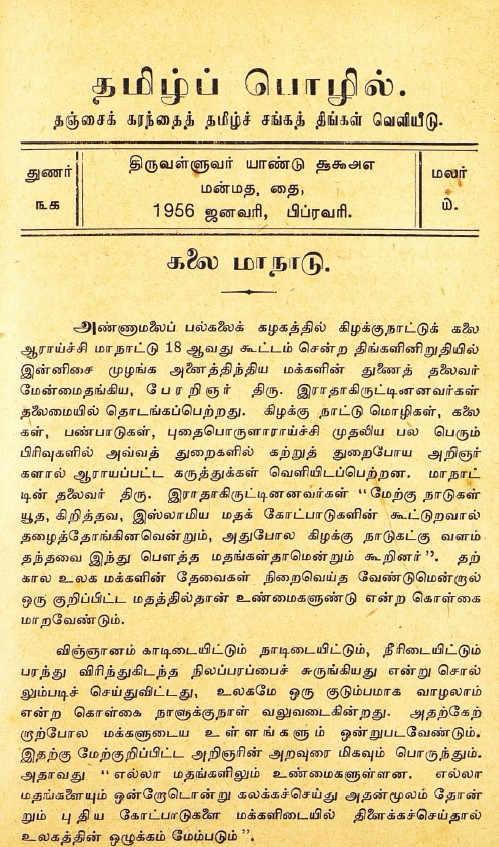 தமிழ்ப் பொழில்.
தஞ்சைக் கரந்தைத் தமிழ்ச் சங்கத் திங்கள் வெளியீடு.
துணர்
௩௧
திருவள்ளுவர் யாண்டு ௲௯௮௭
மன்மத, தை,
1956 ஜனவரி, பிப்ரவரி.
மலர்
௰.
கலை மாநாடு.
அண்ணாமலைப் பல்கலைக் கழகத்தில் கிழக்குநாட்டுக் கலை
ஆராய்ச்சி மாநாட்டு 18 ஆவது கூட்டம் சென்ற திங்களினிறுதியில்
இன்னிசை முழங்க அனைத்திந்திய மக்களின் துணைத் தலைவர்
மேன்மைதங்கிய, பேரறிஞர் திரு. இராதாகிருட்டினனவர்கள்
தலைமையில் தொடங்கப்பெற்றது. கிழக்கு நாட்டு மொழிகள், கலை
கள், பண்பாடுகள், புதைபொருளாராய்ச்சி முதலிய பல பெரும்
பிரிவுகளில் அவ்வத் துறைகளில் கற்றுத் துறைபோய அறிஞர்
களால் ஆராயப்பட்ட கருத்துக்கள் வெளியிடப்பெற்றன. மாநாட்
டின் தலைவர் திரு. இராதாகிருட்டினனவர்கள் “மேற்கு நாடுகள்
யூத, கிறித்தவ, இஸ்லாமிய மதக் கோட்பாடுகளின் கூட்டுறவால்
தழைத்தோங்கினவென்றும், அதுபோல கிழக்கு நாடுகட்கு வளம்
தந்தவை இந்து பௌத்த மதங்கள்தாமென்றும் கூறினர்”. தற்
கால உலக மக்களின் தேவைகள் நிறைவெய்த வேண்டுமென்றால்
ஒரு குறிப்பிட்ட மதத்தில்தான் உண்மைகளுண்டு என்ற கொள்கை
மாறவேண்டும்.
விஞ்ஞானம் காடிடையிட்டும் நாடிடையிட்டும், நீரிடையிட்டும்
பரந்து விரிந்துகிடந்த நிலப்பரப்பைச் சுருங்கியது என்று சொல்
லும்படிச் செய்துவிட்டது, உலகமே ஒரு குடும்பமாக வாழலாம்
என்ற கொள்கை நாளுக்குநாள் வலுவடைகின்றது. அதற்கேற்
றாற்போல மக்களுடைய உள்ளங்களும் ஒன்றுபடவேண்டும்.
இதற்கு மேற்குறிப்பிட்ட அறிஞரின் அறவுரை மிகவும் பொருந்தும்.
அதாவது “எல்லா மதங்களிலும் உண்மைகளுள்ளன. எல்லா
மதங்களையும் ஒன்றோடொன்று கலக்கச்செய்து அதன்மூலம் தோன்
றும் புதிய கோட்பாடுகளை மக்களிடையில் திளைக்கச்செய்தால்
உலகத்தின் ஒழுக்கம் மேம்படும்”.